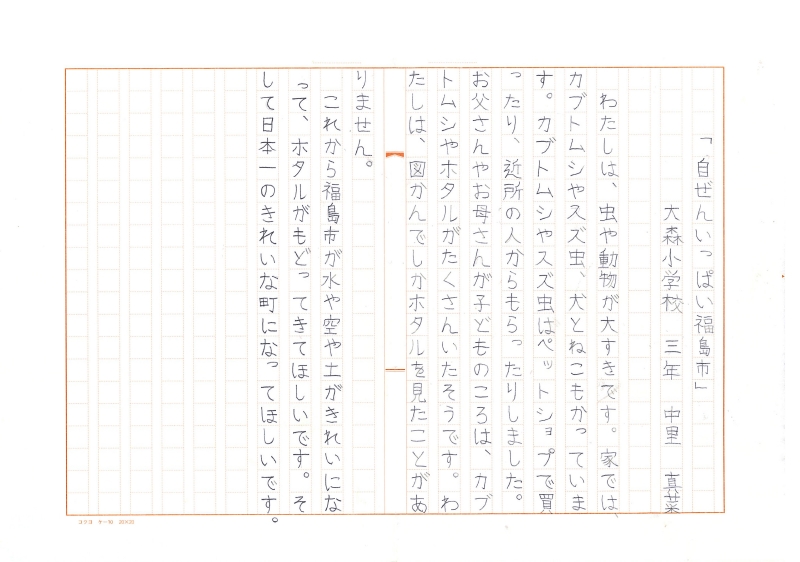 「自ぜんいっぱい福島市」
大森小学校　三年　中里　真菜
わたしは、虫や動物が大すきです。家では、
カブトムシやスズ虫、犬とねこもかっていま
す。カブトムシやスズ虫はペットショップで買
ったり、近所の人からもらったりしました。
お父さんやお母さんが子どものころは、カブ
トムシやホタルがたくさんいたそうです。わ
たしは、図かんでしかホタルを見たことがあ
りません。
これから福島市が水や空や土がきれいにな
って、ホタルがもどってきてほしいです。そ
して日本一のきれいな町になってほしいです。
コクヨ ケー10 20×20